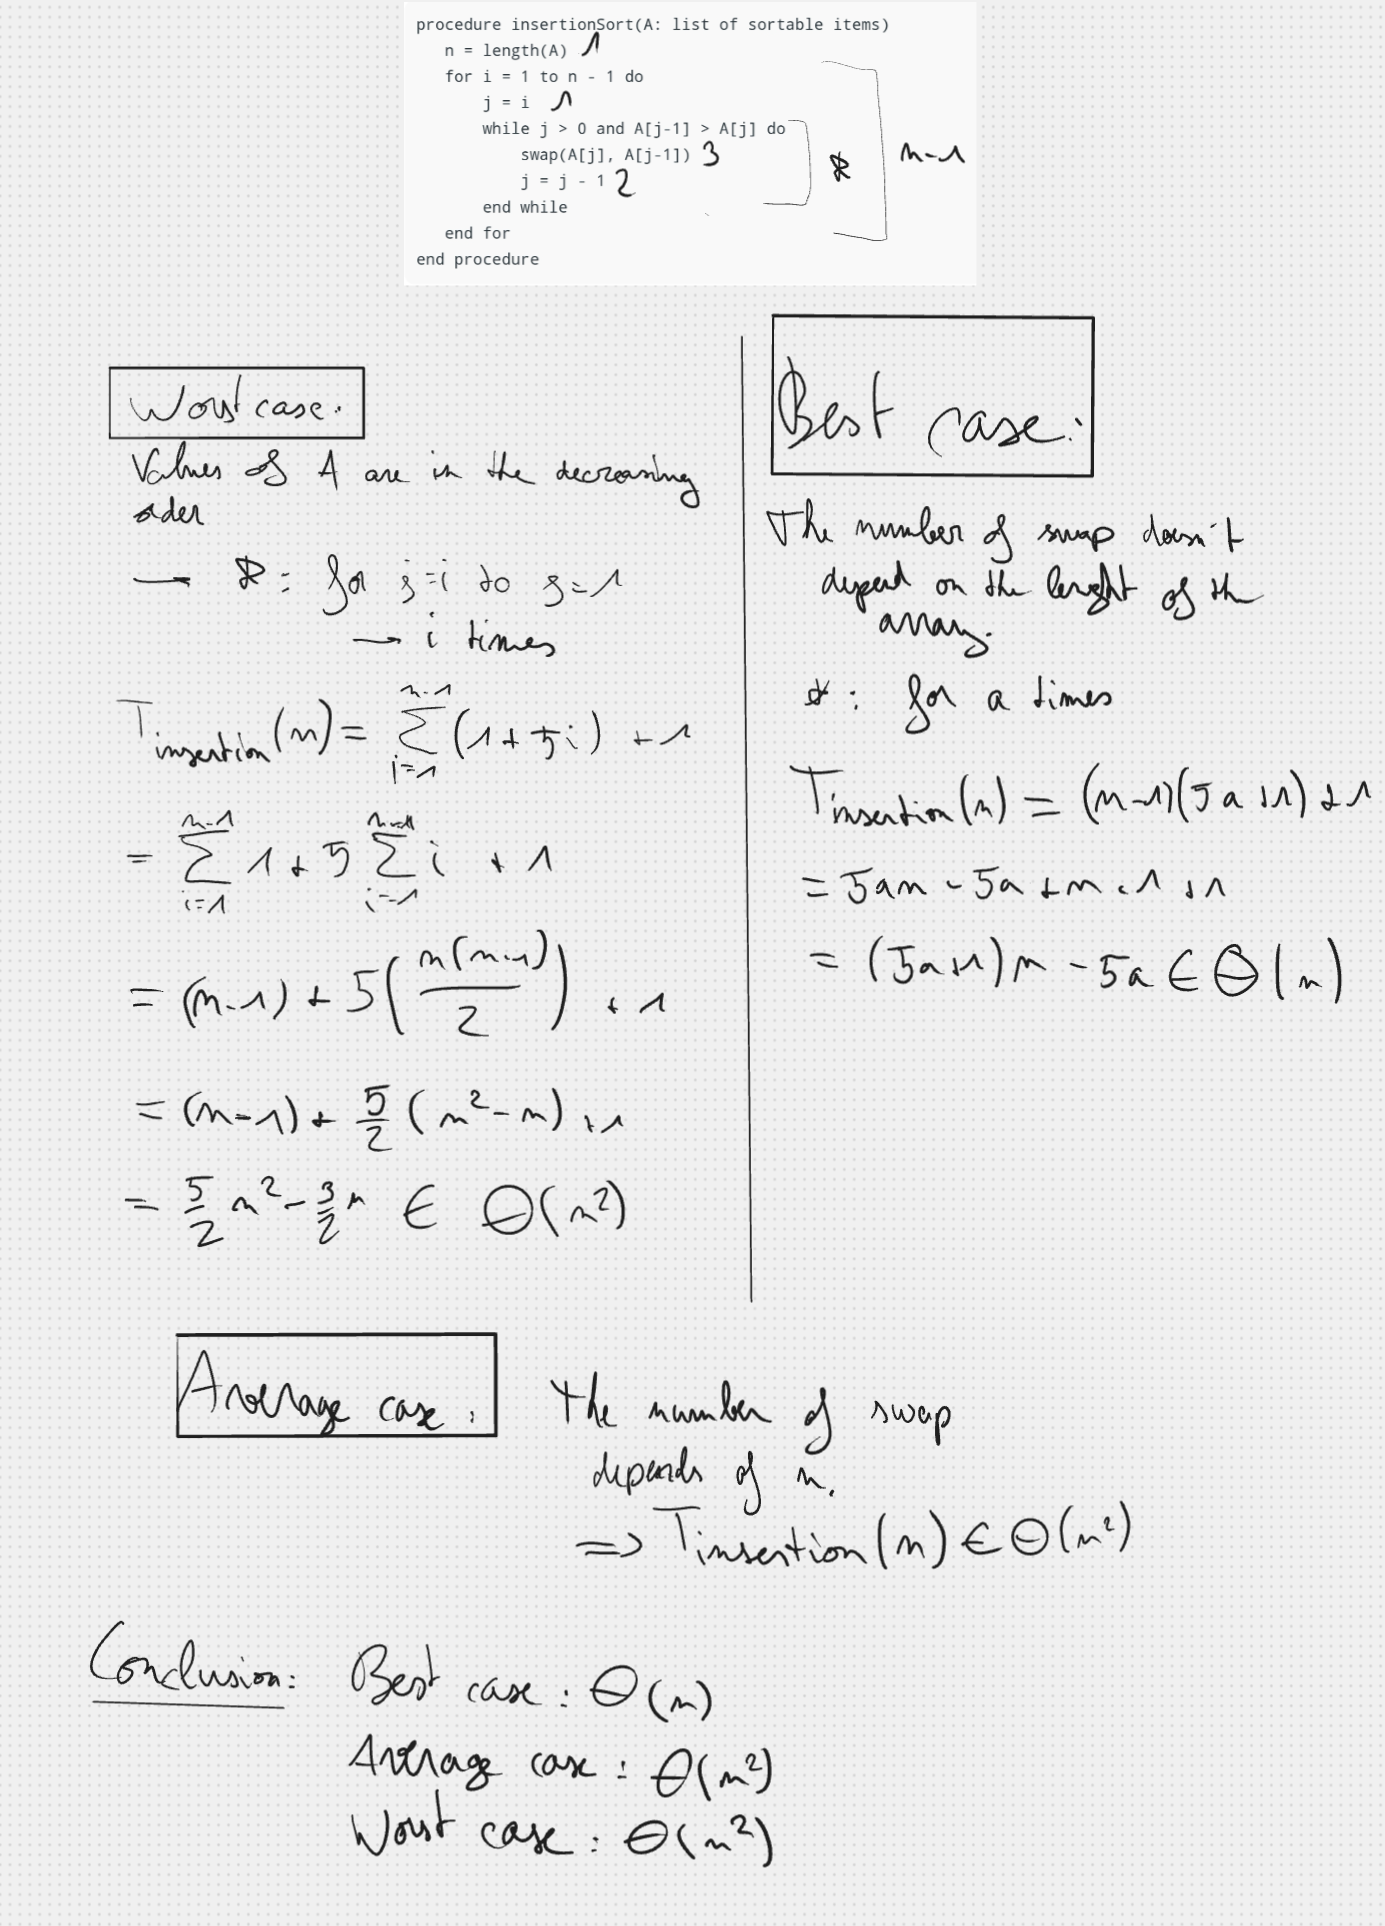 procedure insertionSort(A: list of sortable items)
n = length(A) 1
for i = 1 to n - 1 do
j = i 1
while j > 0 and A[j-1] > A[j] do
swap(A[j], A[j-1]) 3
j = j - 1 2
end while
end for
end procedure
* n-1
Worst case:
Values of A are in the decreasing
order
→ * : for j=i to j=1
→ i times
T insertion (n) = ∑_{i=1}^{n-1} (1 + 5i) + 1
= ∑_{i=1}^{n-1} 1 + 5 ∑_{i=1}^{n-1} i + 1
= (n-1) + 5(n(n-1)/2) + 1
= (n-1) + 5/2 (n² - n) + 1
= 5/2 n² - 3/2 n ∈ Θ(n²)
Best case:
The number of swap doesn't
depend on the lenght of the
array.
* : for a times
T insertion (n) = (n-1)(5a+1) + 1
= 5an - 5a + n - 1 + 1
= (5a+1)n - 5a ∈ Θ(n)
Average case:
The number of swap
depends of n.
=> T insertion (n) ∈ Θ(n²)
Conclusion: Best case: Θ(n)
Average case: Θ(n²)
Worst case: Θ(n²)